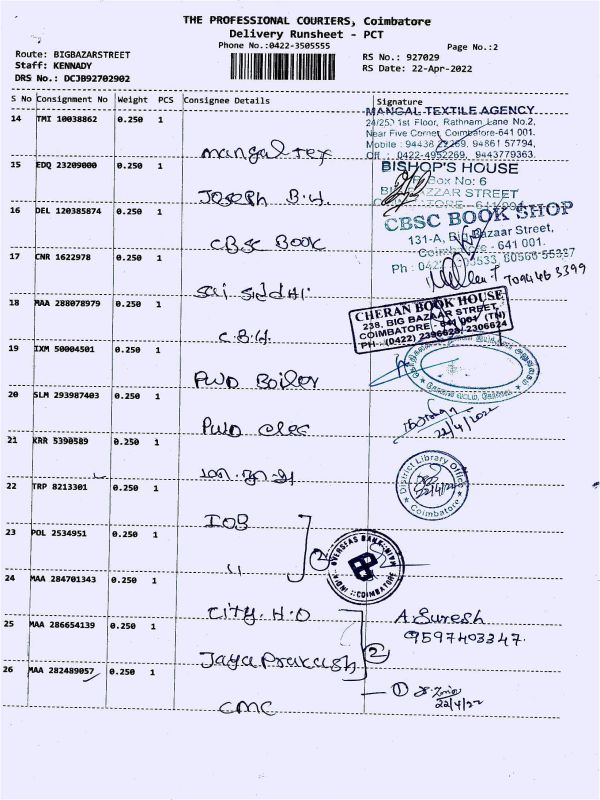 THE PROFESSIONAL COURIERS, Coimbatore
Delivery Runsheet - PCT
Phone No.:0422-3505555
Page No.:2
Route: BIGBAZARSTREET
Staff: KENNADY
DRS No.: DCJB92702902
RS No.: 927029
RS Date: 22-Apr-2022
S No Consignment No Weight PCS Consignee Details Signature
14 TMI 10038862 0.250 1
Mangal Tex
MANGAL TEXTILE AGENCY
1st Floor, Rathnam Lane No.2,
Near Five Corner, Coimbatore-641 001.
Off : 0422-4952269, 9443779363.
15 EDQ 23209000 0.250 1
Joseph B.H.
BISHOP'S HOUSE
Box No: 6
STREET
16 DEL 120385874 0.250 1
CBSC BOOK
CBSC BOOK SHOP
131-A, Big Bazaar Street,
Coimbatore - 641 001.
17 CNR 1622978 0.250 1
Sai Siddhi
7094463399
18 MAA 288078979 0.250 1
C.B.H.
CHERAN BOOK HOUSE
238, BIG BAZAAR STREET,
COIMBATORE - 641 001 (TN)
PH : (0422) 2396623/ 2306624
19 IXM 50004501 0.250 1
PWD Boiler
20 SLM 293987403 0.250 1
PWD Elec
22/4/2022
21 KRR 5390589 0.250 1
District Library Office
Coimbatore
22 TRP 8213301 0.250 1
IOB
23 POL 2534951 0.250 1
"
2
OVERSEAS BANK
COIMBATORE
24 MAA 284701343 0.250 1
City. H.O
25 MAA 286654139 0.250 1
Jaya Prakash
2
A. Suresh
9597403347.
26 MAA 282489057 0.250 1
CMC
1
22/4/22